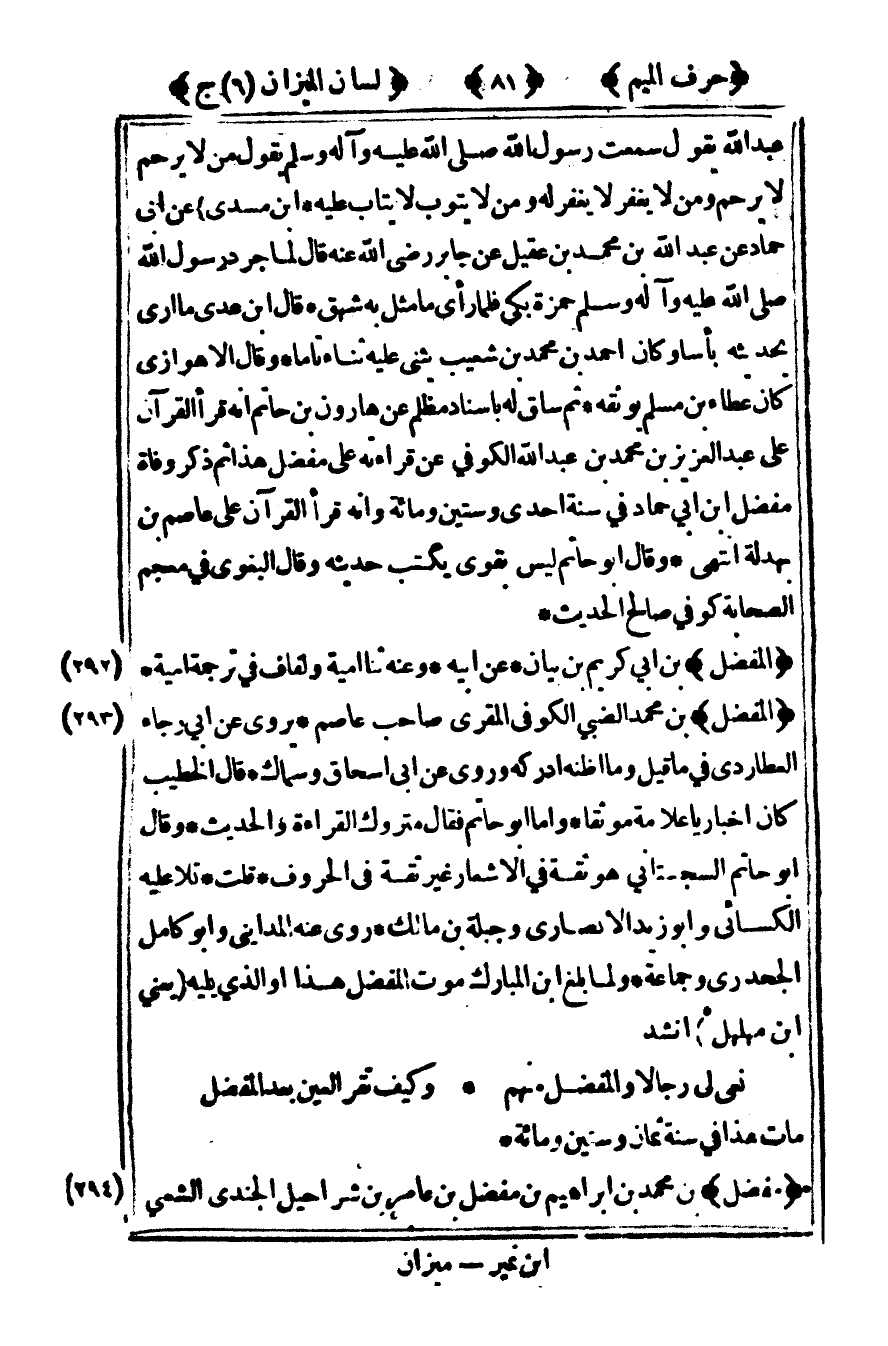 ﴿حرف الميم﴾ ﴿٨١﴾ ﴿لسان الميزان (٦) ج﴾
عبدالله يقول سمعت رسول الله صلى الله عليه وآله وسلم يقول من لا يرحم
لا يرحم ومن لا يغفر لا يغفر له ومن لا يتوب لا يتاب عليه * ابن مسدى) عن ابى
حماد عن عبد الله بن محمد بن عقيل عن جابر رضى الله عنه قال لما جرد رسول الله
صلى الله عليه وآله وسلم حمزة بكى فلما رأى ما مثل به شهق * قال ابن عدى ما ارى
بحديثه بأسا وكان احمد بن محمد بن شعيب يثنى عليه ثناء تاما * وقال الاهوازى
كان عطاء بن مسلم يوثقه * ثم ساق له باسناد مظلم عن هارون بن حاتم انه قرأ القرآن
على عبدالعزيز بن محمد بن عبدالله الكوفي عن قراءته على مفضل هذا ثم ذكر وفاة
مفضل ابن ابي حماد في سنة احدى وستين ومائة وانه قرأ القرآن على عاصم بن
بهدلة انتهى * وقال ابو حاتم ليس بقوى يكتب حديثه وقال البغوى في معجم
الصحابة كوفي صالح الحديث *
﴿المفضل﴾ بن ابي كريم بن بيان * عن ابيه * وعنه ثنا امية ولفاف في ترجمة امية * (٢٩٢)
﴿المفضل﴾ بن محمد الضبي الكوفى المقرى صاحب عاصم * يروى عن ابي رجاء (٢٩٣)
العطاردى في ما قيل وما اظنه ادركه وروى عن ابى اسحاق وسماك * قال الخطيب
كان اخباريا علامة موثقا * واما ابو حاتم فقال متروك القراءة والحديث * وقال
ابو حاتم السجستاني هو ثقة في الاشعار غير ثقة فى الحروف * قلت * تلا عليه
الكسائى وابو زيد الانصارى وجبلة بن مالك * روى عنه المداينى وابو كامل
الجحدرى وجماعة * ولما بلغ ابن المبارك موت المفضل هذا او الذي يليه (يعني
ابن مهلهل) انشد
نعى لى رجالا والمفضل منهم * وكيف تقر العين بعد المفضل
مات هذا في سنة ثمان وستين ومائة *
﴿مفضل﴾ بن محمد بن ابراهيم بن مفضل بن عامر بن شراحيل الجندى الشعبي (٢٩٤)
ابن نمير — ميزان